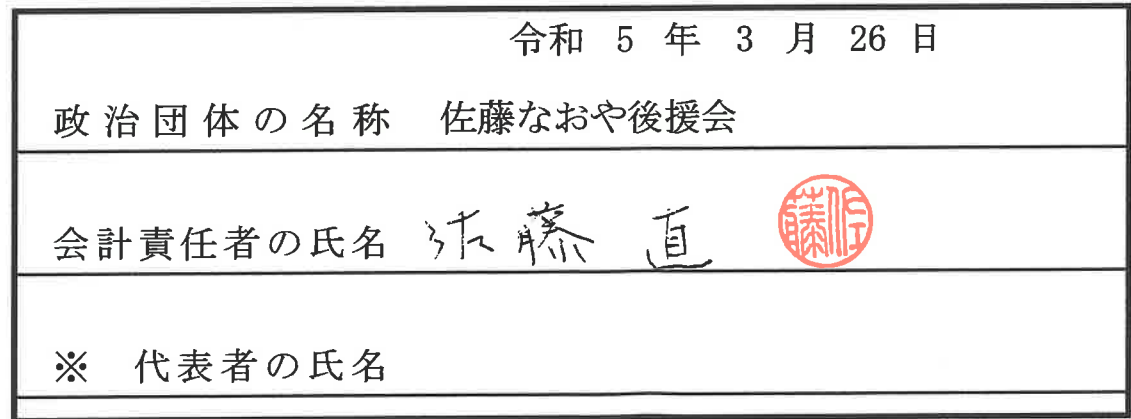 令和 5 年 3 月 26 日
政治団体の名称 佐藤なおや後援会
会計責任者の氏名 佐藤 直 佐藤
※ 代表者の氏名